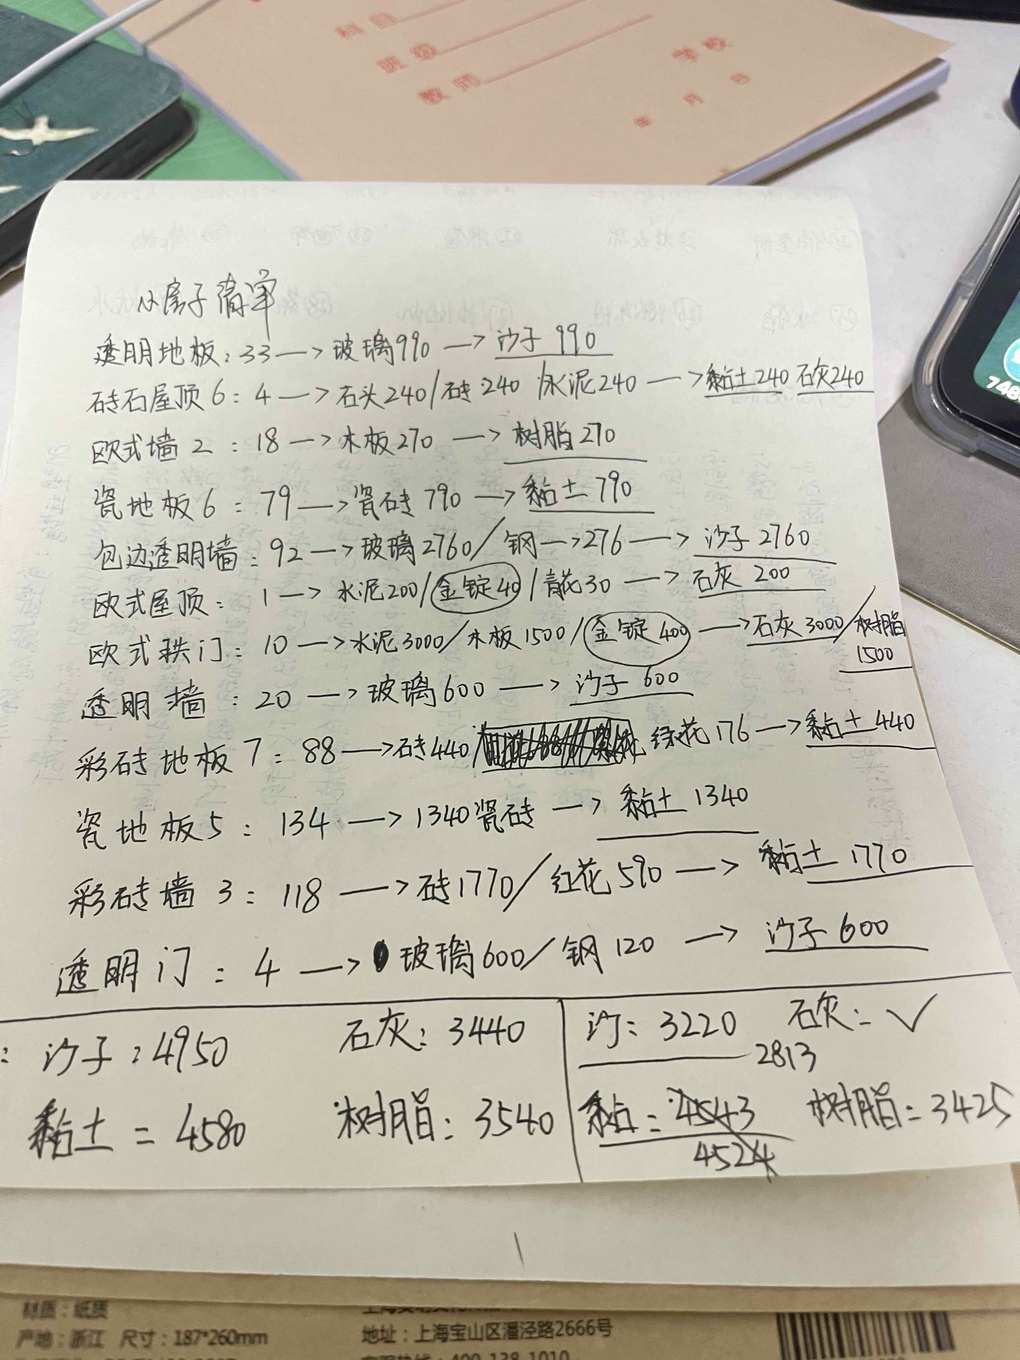 科目
班级
教师
学校
年 月 日
746
小房子简单
透明地板：33—>玻璃990—>沙子990
砖石屋顶6：4—>石头240/砖240/水泥240—>黏土240 石灰240
欧式墙2：18—>木板270—>树脂270
瓷地板6：79—>瓷砖790—>黏土790
包边透明墙：92—>玻璃2760/钢—>276—>沙子2760
欧式屋顶：1—>水泥200/金锭40/青花30—>石灰200
欧式拱门：10—>水泥3000/木板1500/金锭400—>石灰3000/树脂1500
透明墙：20—>玻璃600—>沙子600
彩砖地板7：88—>砖440/绿花176—>黏土440
瓷地板5：134—>1340瓷砖—>黏土1340
彩砖墙3：118—>砖1770/红花590—>黏土1770
透明门：4—>玻璃600/钢120—>沙子600
：沙子：4950 石灰：3440
黏土=4580 树脂：3540
沙：3220 石灰：✓
2813
黏=4543 树脂=3425
4524
材质：纸质
产地：浙江 尺寸：187*260mm
地址：上海宝山区潘泾路2666号
400-138-1010